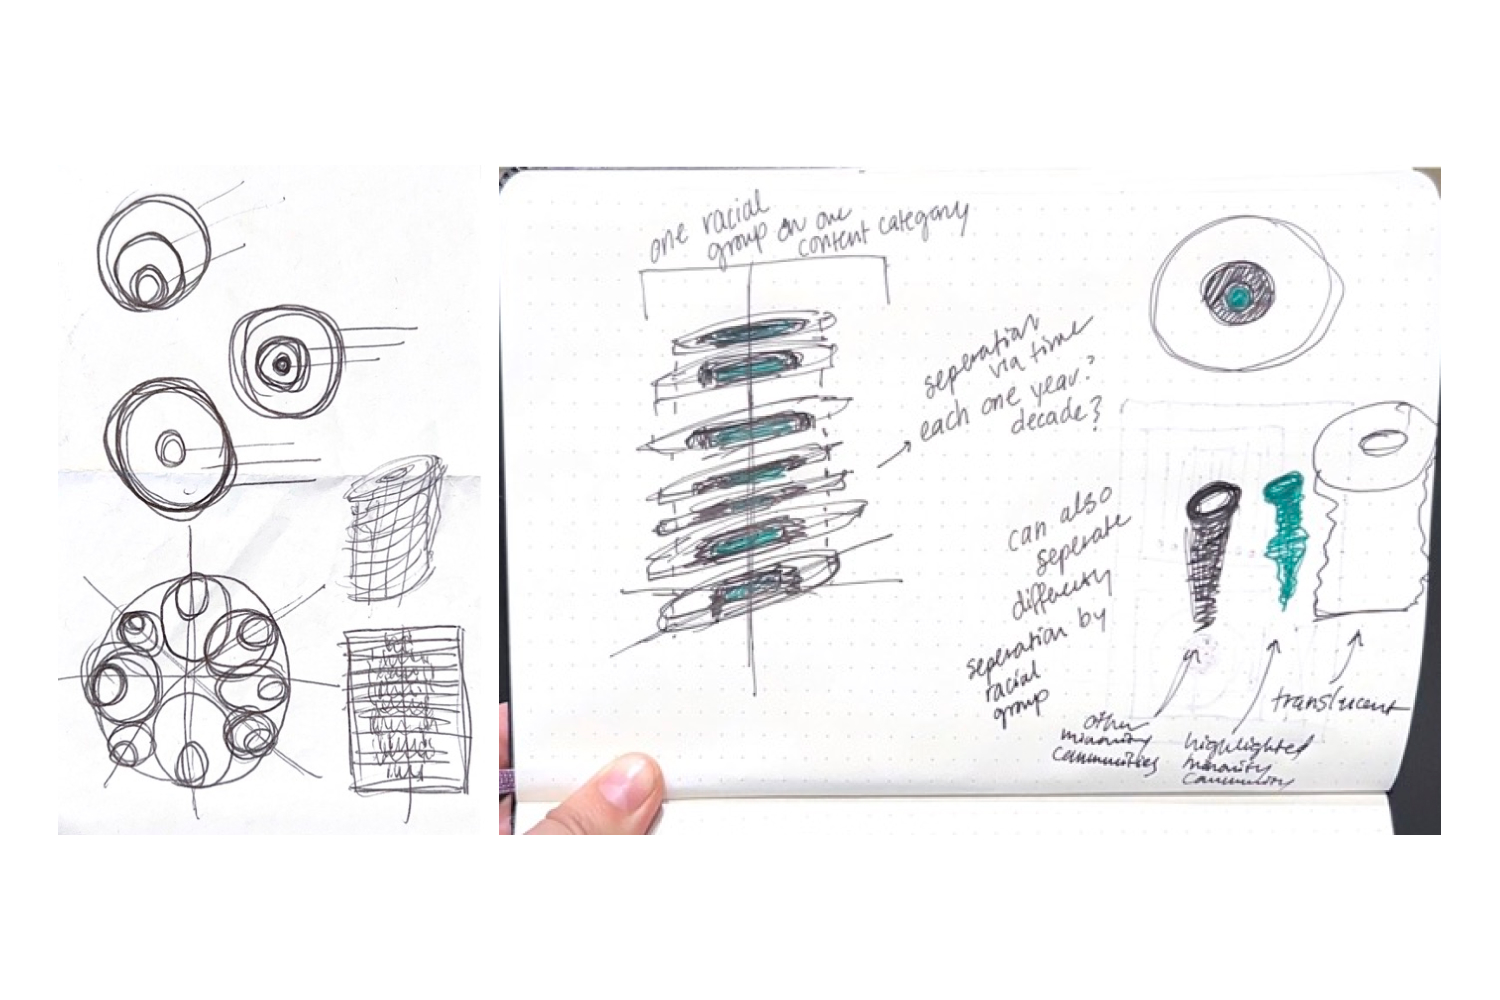 one racial
group on one
content category
seperation
via time
each one year?
decade?
can also
seperate
differently
seperation by
racial
group
other
minority
communities
highlighted
minority
community
translucent